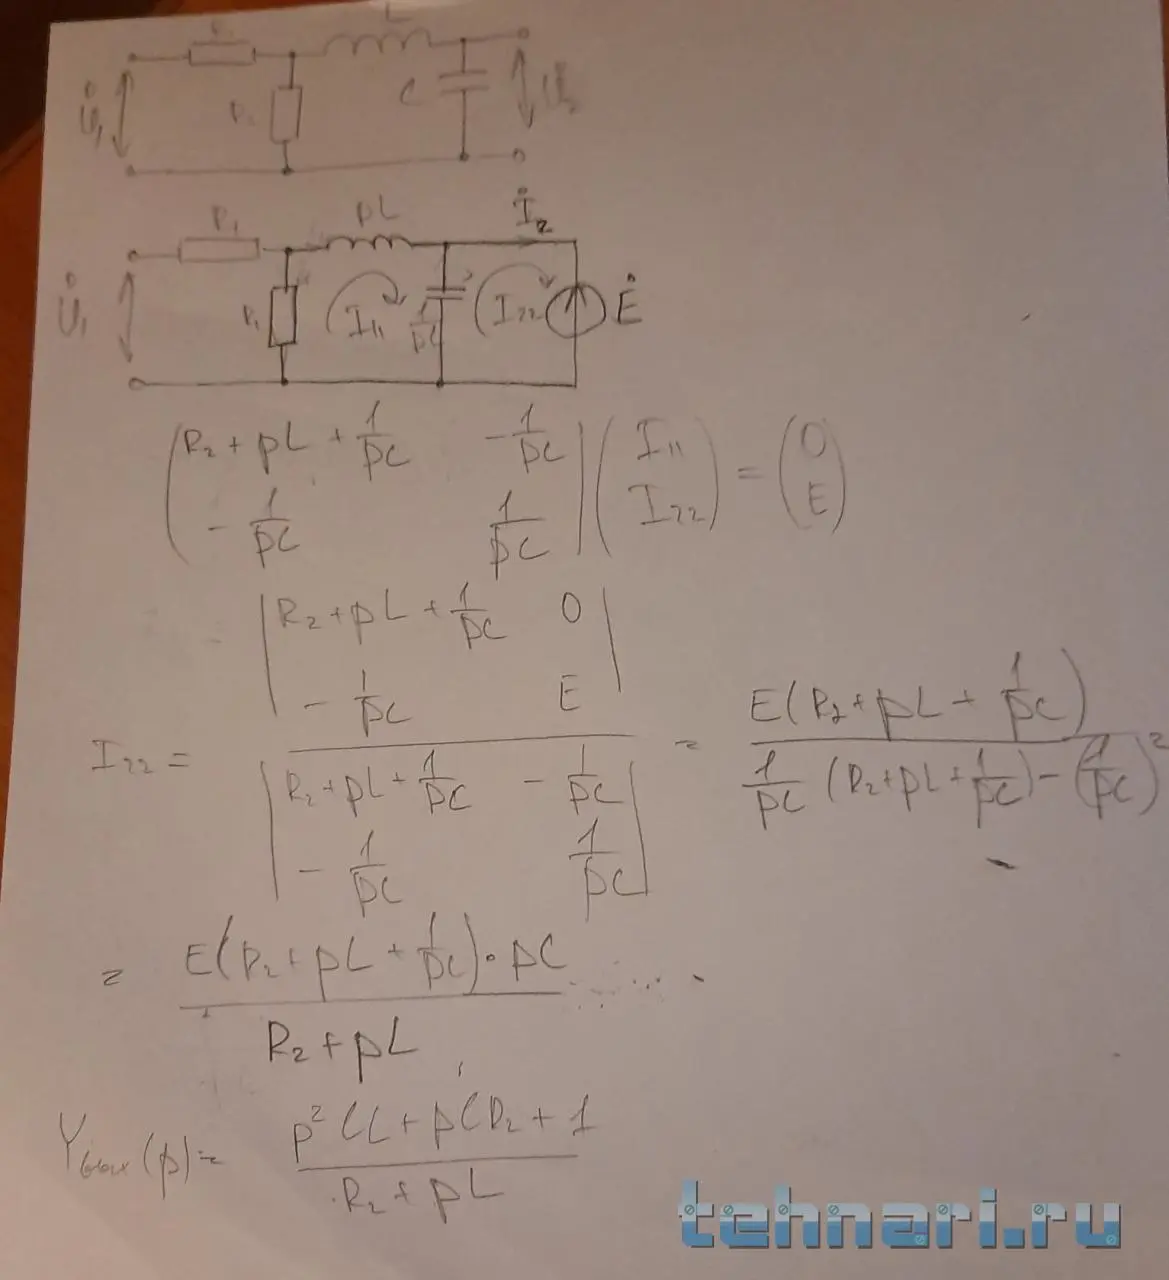 L
U̇₁ C U̇₂
R₁ pL İ₂
U̇₁ R₁ I₁₁ 1/pC I₂₂ Ė
(R₂ + pL + 1/pC   - 1/pC) (I₁₁) = (0)
(- 1/pC   1/pC) (I₂₂) (E)
|R₂ + pL + 1/pC   0|
|- 1/pC   E|
I₂₂ = = E(R₂ + pL + 1/pC) / (1/pC (R₂ + pL + 1/pC) - (1/pC)²)
|R₂ + pL + 1/pC   - 1/pC|
|- 1/pC   1/pC|
= E(R₂ + pL + 1/pC) · pC / (R₂ + pL)
Yвых(p) = (p²CL + pCR₂ + 1) / (R₂ + pL)
tehnari.ru